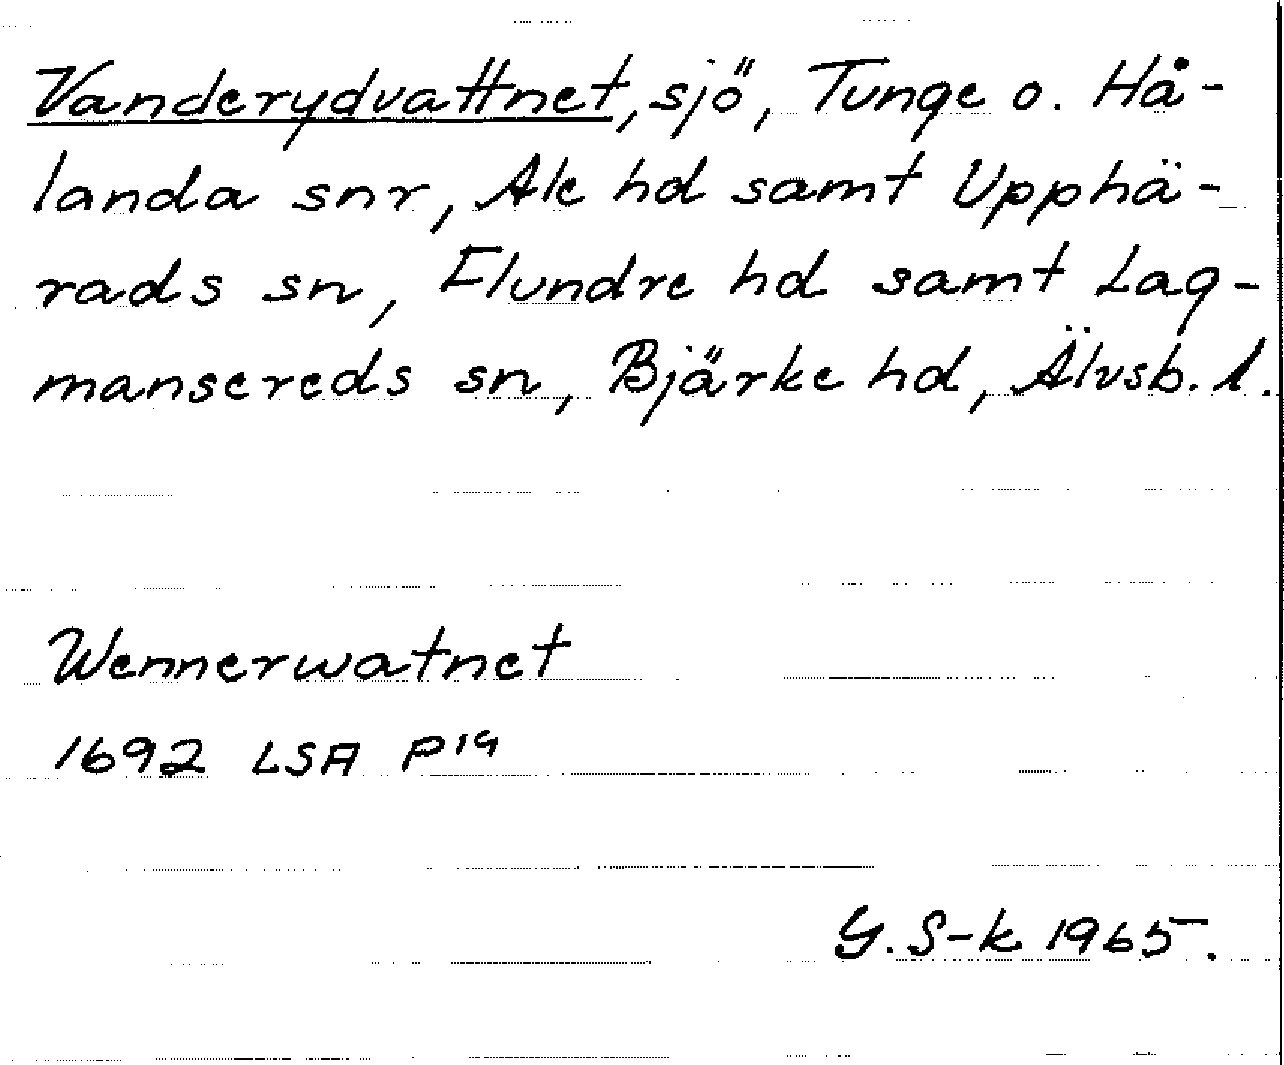 Vanderydvattnet, sjö, Tunge o. Hå-
landa snr, Ale hd samt Upphä-
rads sn, Flundre hd samt Lag-
mansereds sn, Bjärke hd, Älvsb. l.
Wennerwatnet
1692 LSA P¹⁹
G. S-k 1965.